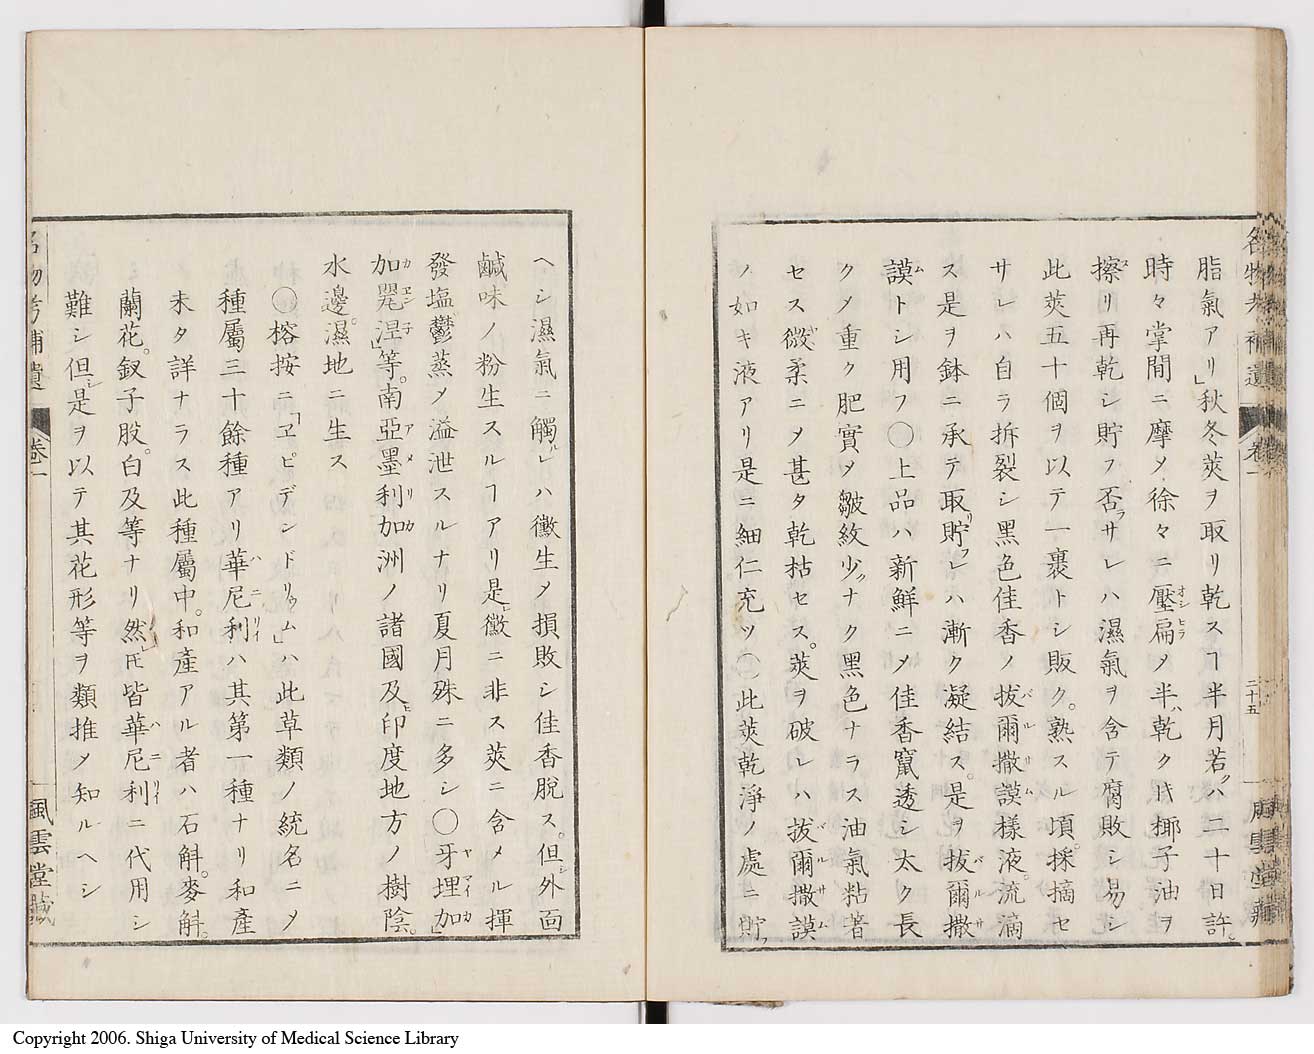 名物考補遺 巻一 二十五 風雲堂藏
脂氣アリ」秋冬莢ヲ取リ乾スヿ半月若クハ二十日許ヒ
時々掌間ニ摩メ徐々ニ壓扁メ半ハ乾クトキ椰子油ヲ
擦リ再乾シ貯フ否ラサレハ濕氣ヲ含テ腐敗シ易シ
此莢五十個ヲ以テ一裹トシ販ク。熟スル頃。採摘セ
サレハ自ラ拆裂シ黑色佳香ノ拔爾撒謨樣液。流滴
ス是ヲ鉢ニ承テ取リ貯フレハ漸ク凝結ス。是ヲ拔爾撒
謨トシ用フ〇上品ハ新鮮ニメ佳香竄透シ太ク長
クメ重ク肥實メ皺紋少クナク黑色ナラス油氣粘著
セス微柔ニメ甚タ乾枯セス。莢ヲ破レハ拔爾撒謨
ノ如キ液アリ是ニ細仁充ツ〇此莢乾淨ノ處ニ貯フ
ヘシ濕氣ニ觸ルレハ黴生メ損敗シ佳香脫ス。但シ外面
鹹味ノ粉生スルヿアリ是レ黴ニ非ス莢ニ含メル揮
發塩鬱蒸メ溢泄スルナリ夏月殊ニ多シ〇牙埋加」
加兒涅」等。南亞墨利加洲ノ諸國及ヒ印度地方ノ樹陰。
水邊。濕地ニ生ス
〇榕按ニ「ヱピデンドリゥム」ハ此草類ノ統名ニメ
種屬三十餘種アリ華尼利ハ其第一種ナリ和產
未タ詳ナラス此種屬中。和產アル者ハ石斛。麥斛。
蘭花。釵子股。白及等ナリ然レ𪜈皆華尼利ニ代用シ
難シ但シ是ヲ以テ其花形等ヲ類推メ知ルヘシ
名物考補遺 巻一 風雲堂藏
Copyright 2006. Shiga University of Medical Science Library